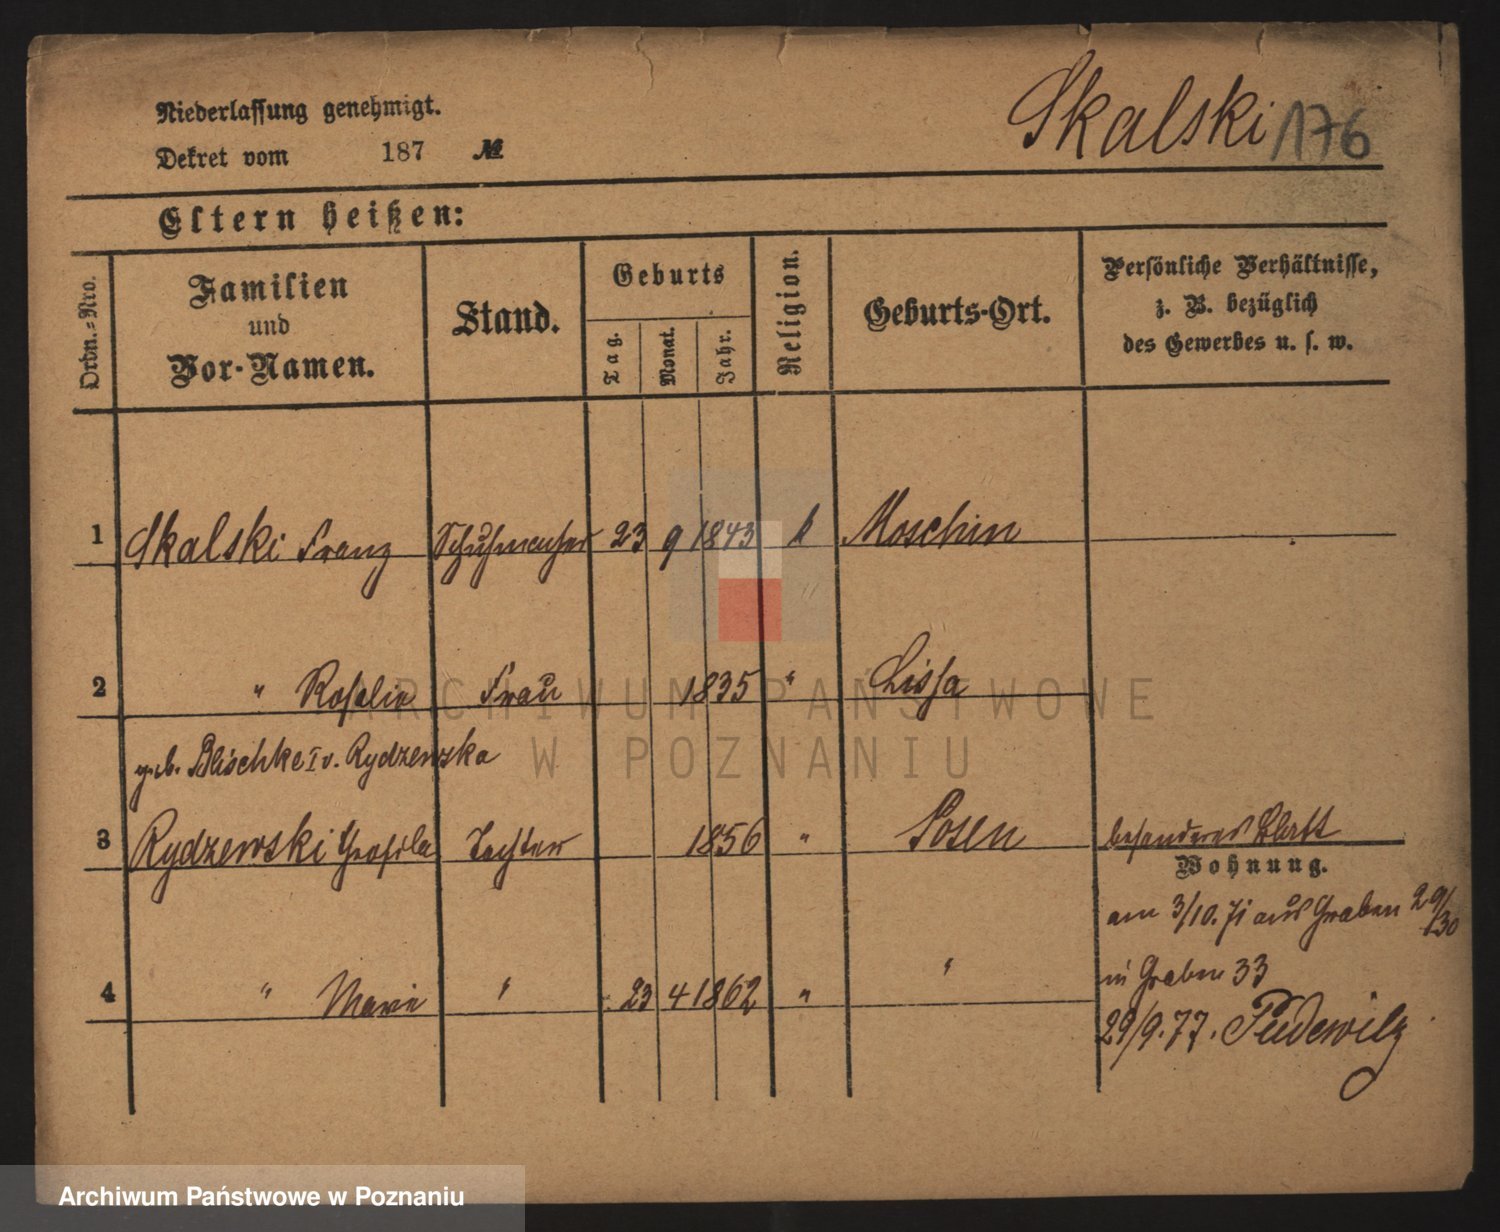 Niederlassung genehmigt.
Dekret vom 187 №
Skalski 176
Eltern heißen:
Ordn.-Nro.
Familien
und
Vor-Namen.
Stand.
Geburts
Tag.
Monat.
Jahr.
Religion.
Geburts-Ort.
Persönliche Verhältnisse,
z. B. bezüglich
des Gewerbes u. s. w.
1 Skalski Franz Schuhmacher 23 9 1843 k Moschin
2 " Rosalie Frau 1835 " Lissa
geb. Blischke I v. Rydzewska
3 Rydzewski Tochter 1856 " Posen besonderes Blatt
Wohnung.
am 3/10. 71 aus Graben 29/30
in Graben 33
4 " Marie " 23 4 1862 " "
29/9. 77. Pudewitz
ARCHIWUM PAŃSTWOWE
W POZNANIU
Archiwum Państwowe w Poznaniu